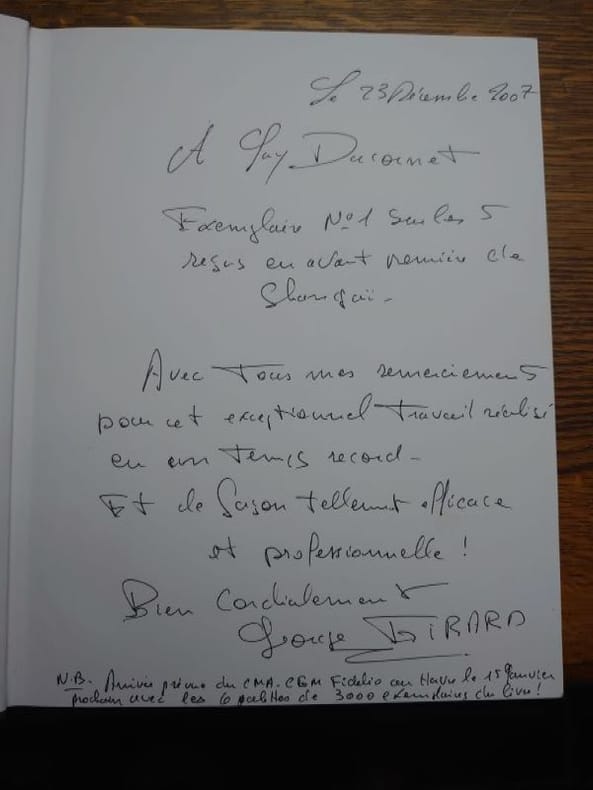 Le 23 Décembre 2007
A Guy Ducornet
Exemplaire N°1 sur les 5
reçus en avant première de
Shangaï -
Avec Tous mes remerciements
pour cet exceptionnel Travail réalisé
en un Temps record -
Et de façon tellement efficace
et professionnelle !
Bien Cordialement
George GIRARD
N.B. Arrivée prévue du CMA-CGM Fidelio au Havre le 15 Janvier
prochain avec les 6 palettes de 3000 exemplaires du livre !